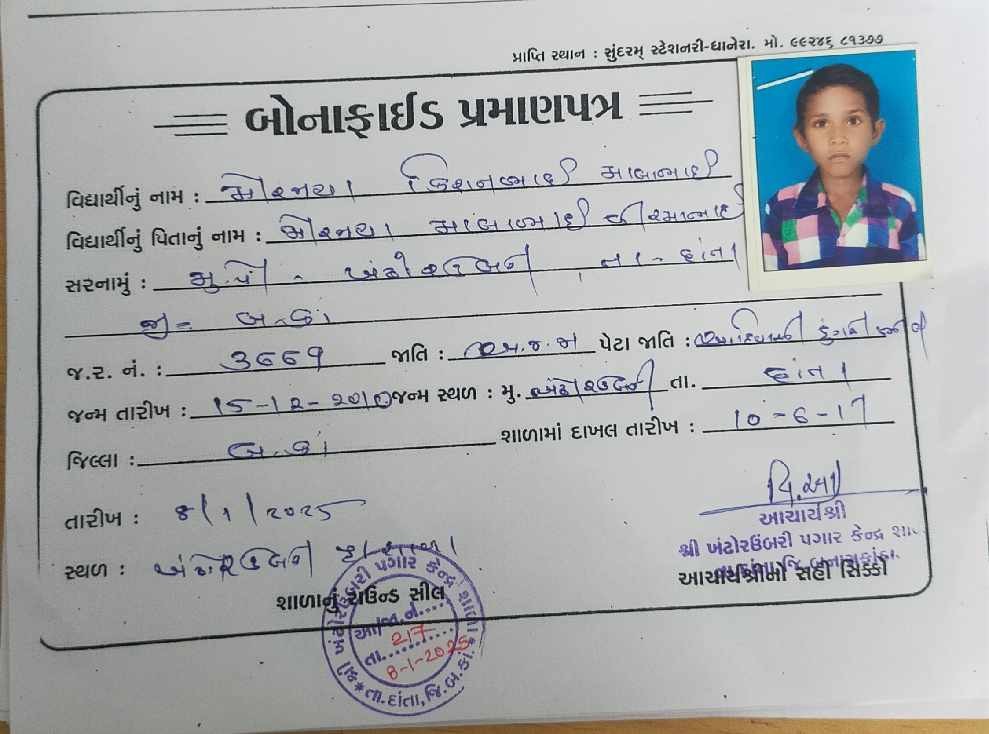 પ્રાપ્તિ સ્થાન : સુંદરમ્ સ્ટેશનરી-ધાનેરા. મો. ૯૯૨૪૬ ૮૧૩૭૭
બોનાફાઈડ પ્રમાણપત્ર
વિદ્યાર્થીનું નામ : કિશનભાઈ
વિદ્યાર્થીનું પિતાનું નામ :
સરનામું : મુ.પો - ખંઢોરઉંબરી, તા - દાંતા
જી - બ.કાં
જ.ર. નં. : ૩૮૬૧ જાતિ : પેટા જાતિ :
જન્મ તારીખ : 15-12-2010 જન્મ સ્થળ : મુ. ખંઢોરઉંબરી તા. દાંતા
જિલ્લા : બ.કાં શાળામાં દાખલ તારીખ : 10-6-17
તારીખ : ૪/1/2025
સ્થળ : ખંઢોરઉંબરી પ્રા.શાળા
આચાર્યશ્રી
શ્રી ખંઢોરઉંબરી પગાર કેન્દ્ર શાળા
તા.દાંતા, જિ.બનાસકાંઠા.
આચાર્યશ્રીની સહી સિક્કો
શાળાનું રાઉન્ડ સીલ
ખંઢોરઉંબરી પગાર કેન્દ્ર શાળા
આ.જા.નં. 217
તા. 8-1-2025
તા.દાંતા, જિ.બ.કાં.